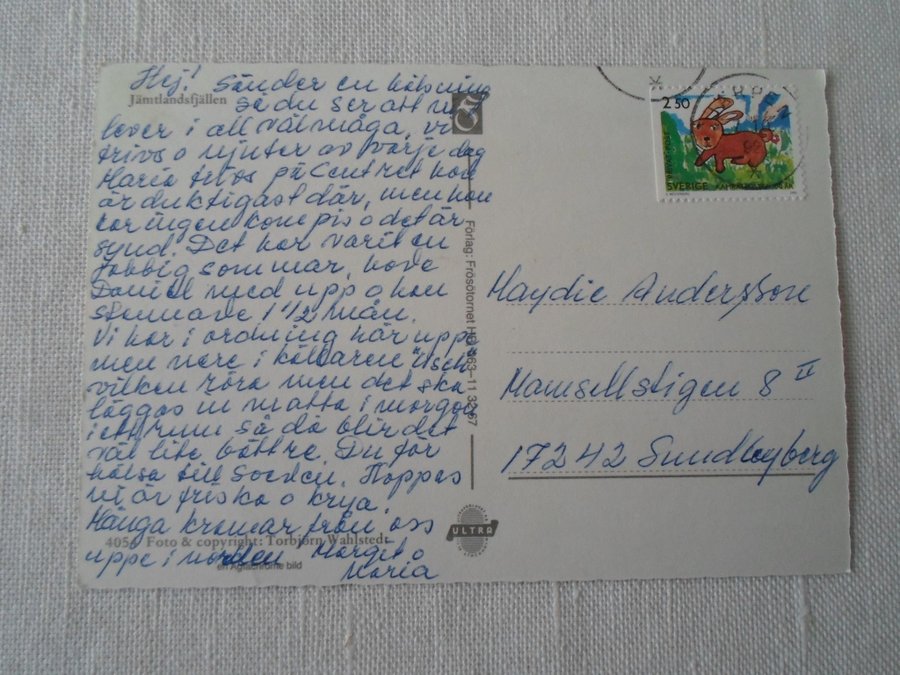 Hej! Sänder en hälsning
Jämtlandsfjällen
så du ser att vi
lever i all välmåga, vi
trivs o njuter av varje dag
Maria trivs på Centret hon
är duktigast där, men hon
har ingen kompis o det är
synd. Det har varit en
jobbig sommar, hade
Daniel med upp o han
stannade 1 1/2 mån.
Vi har i ordning här uppe
men nere i källaren usch
vilken röra men det ska
läggas in matta i morgon
i ett rum så då blir det
väl lite bättre. Du får
hälsa till
Hoppas
ni är friska o krya.
Många kramar från oss
4056 Foto & copyright: Torbjörn Wahlstedt
uppe i norden, Margit o
en Agfachrome bild
Maria
Förlag: Frösötornet HB 063-11 32 67
ULTRA
2.50
SVERIGE
Maydie Andersson
Mamsellstigen 8 II
17242 Sundbyberg